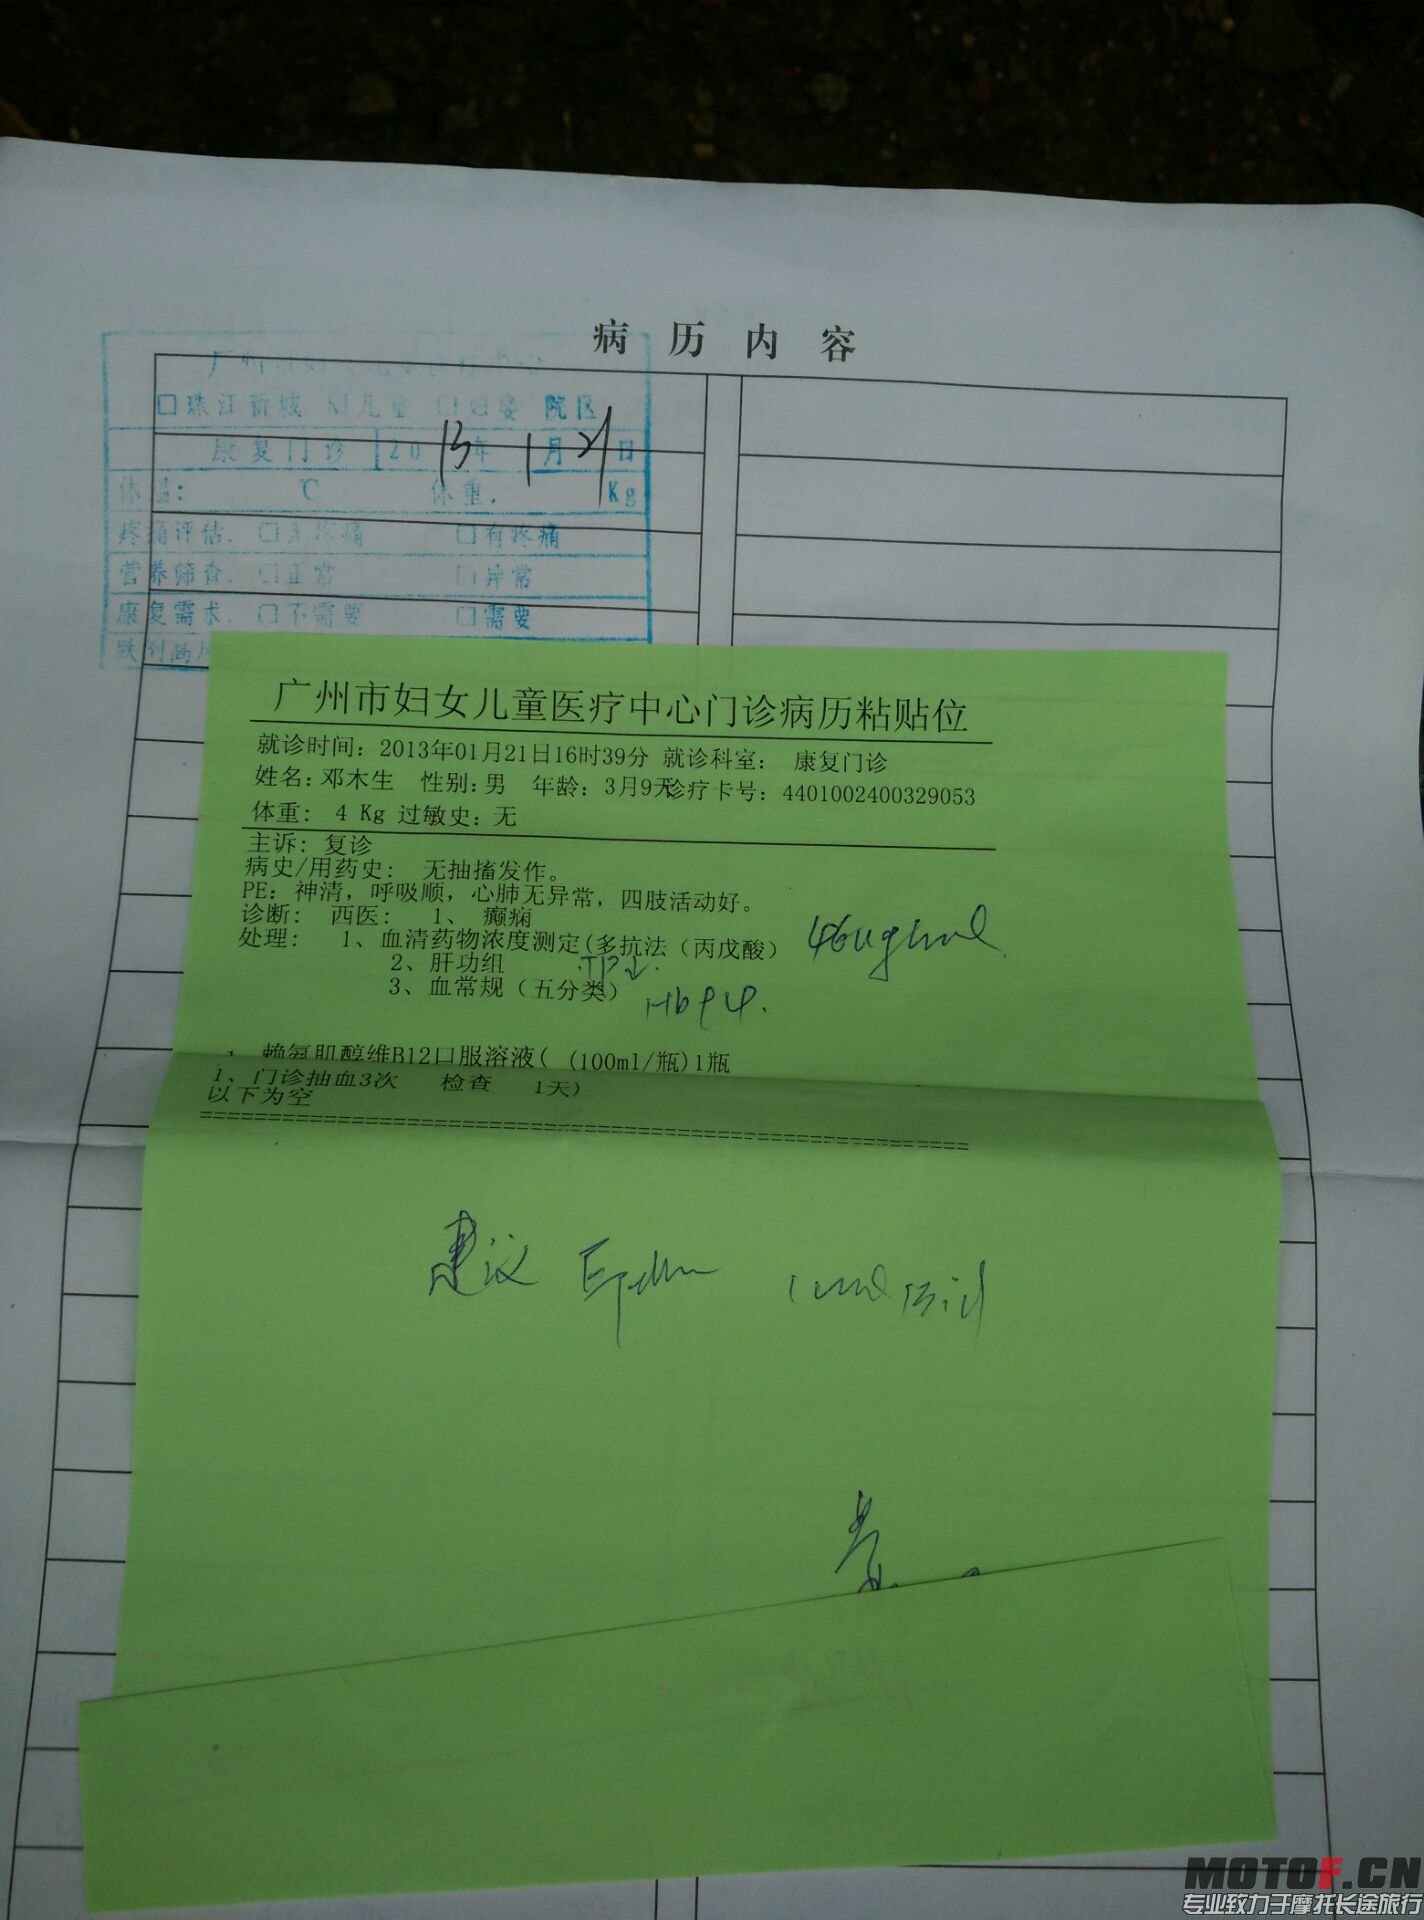 病历内容
□珠江新城 □儿童 □妇婴 院区
康复门诊 2013年1月21日
体温: ℃ 体重. Kg
疼痛评估. □无疼痛 □有疼痛
营养筛查. □正常 □异常
康复需求. □不需要 □需要
广州市妇女儿童医疗中心门诊病历粘贴位
就诊时间: 2013年01月21日16时39分 就诊科室: 康复门诊
姓名: 邓木生 性别: 男 年龄: 3月9天诊疗卡号: 4401002400329053
体重: 4 Kg 过敏史: 无
主诉: 复诊
病史/用药史: 无抽搐发作。
PE: 神清, 呼吸顺, 心肺无异常, 四肢活动好。
诊断: 西医: 1、 癫痫
处理: 1、血清药物浓度测定(多抗法（丙戊酸） 46ug/ml
2、肝功组 TP↓.
3、血常规（五分类）
1、赖氨肌醇维B12口服溶液( (100ml/瓶)1瓶
1、门诊抽血3次 检查 1天)
以下为空
建议 1ml Bid
MOTOF.CN
专业致力于摩托长途旅行